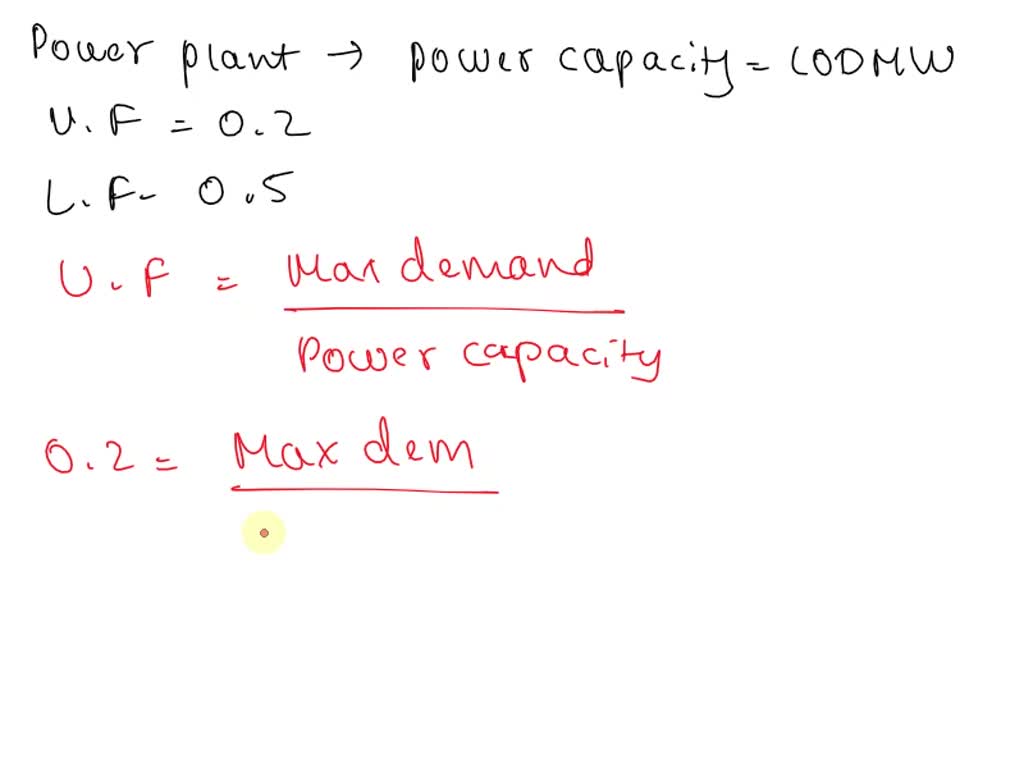 Power plant → power capacity = 100MW
U.F = 0.2
L.F- 0.5
U.F = Max demand
Power capacity
0.2 = Max dem